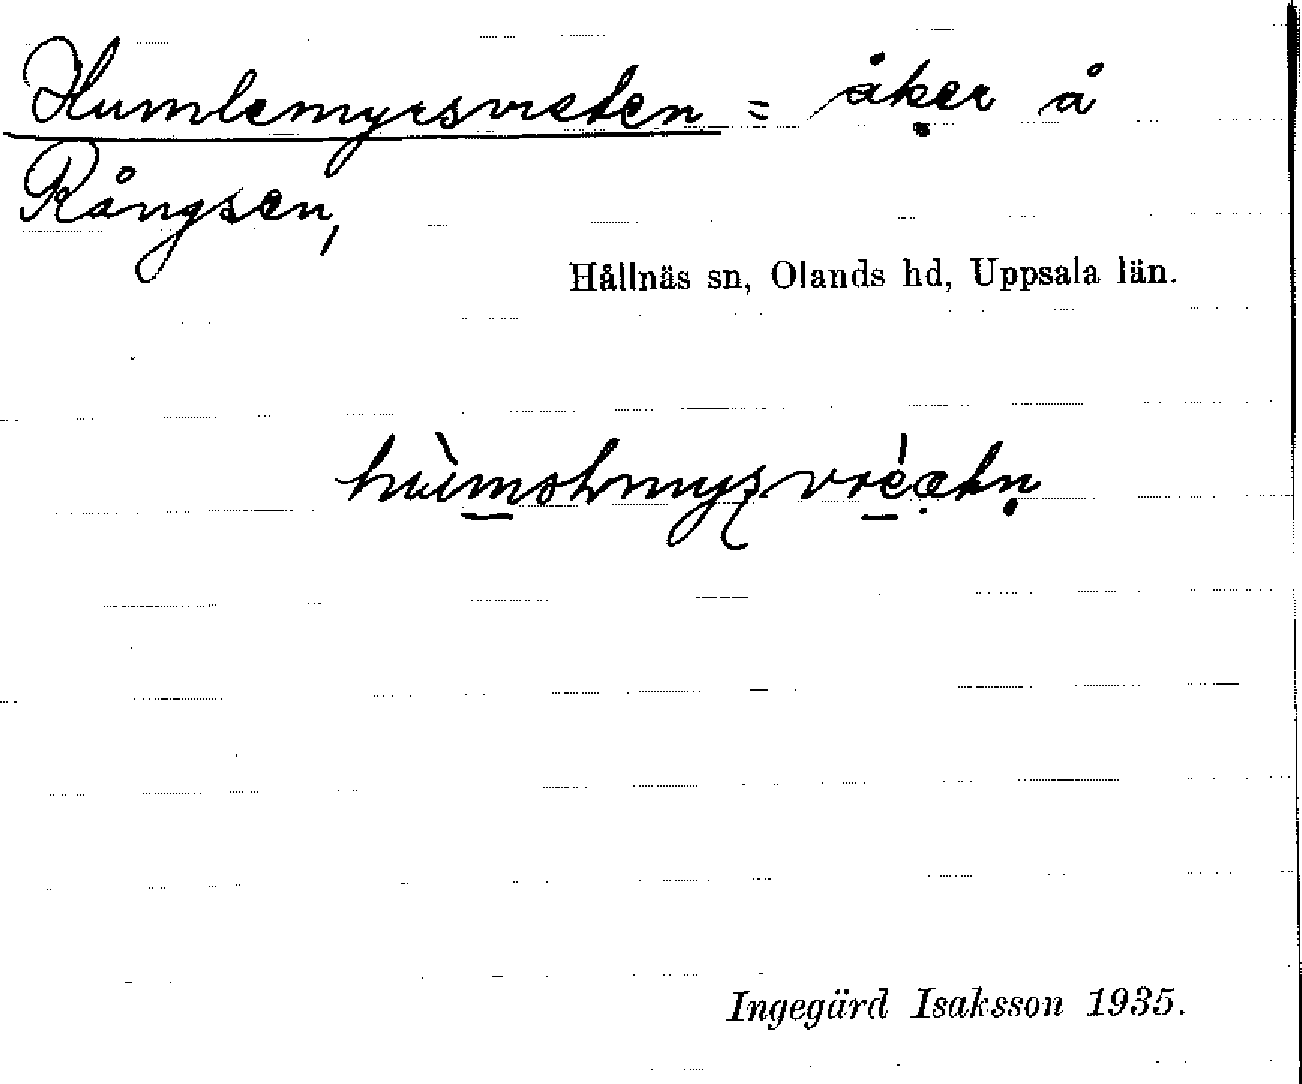 Humlemyrsvreten = åker å
Rångsen,
Hållnäs sn, Olands hd, Uppsala län.
Ingegärd Isaksson 1935.